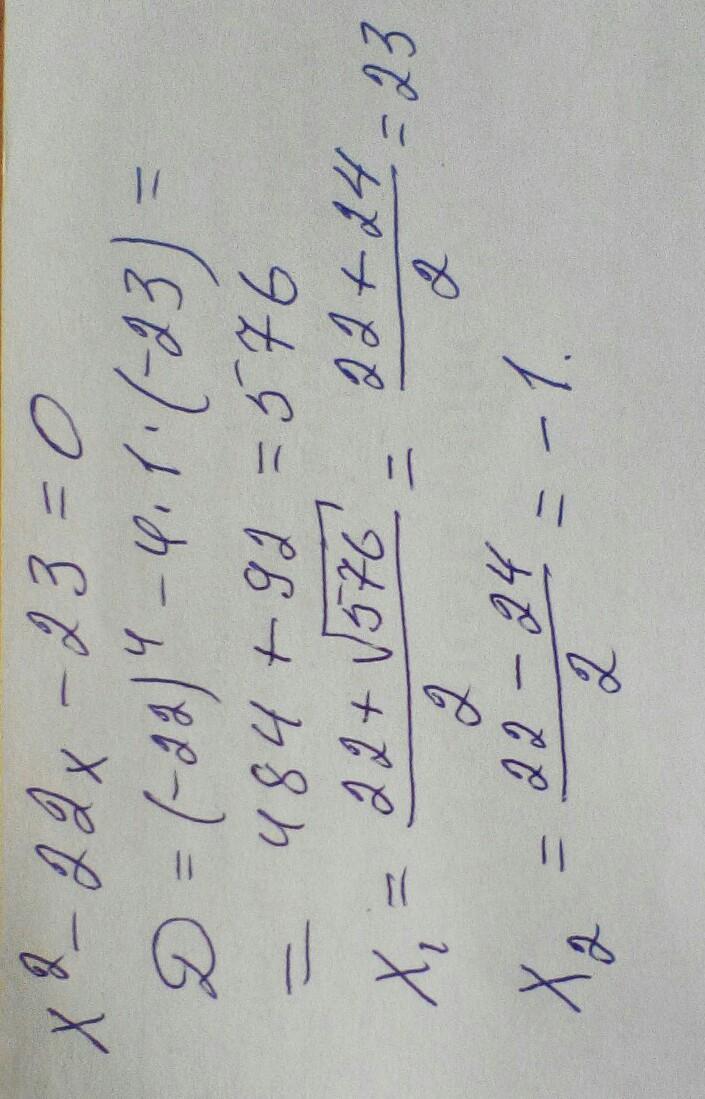 x² - 22x - 23 = 0
D = (-22)⁴ - 4·1·(-23) =
= 484 + 92 = 576
x₁ = (22 + √576)/2 = (22 + 24)/2 = 23
x₂ = (22 - 24)/2 = -1.